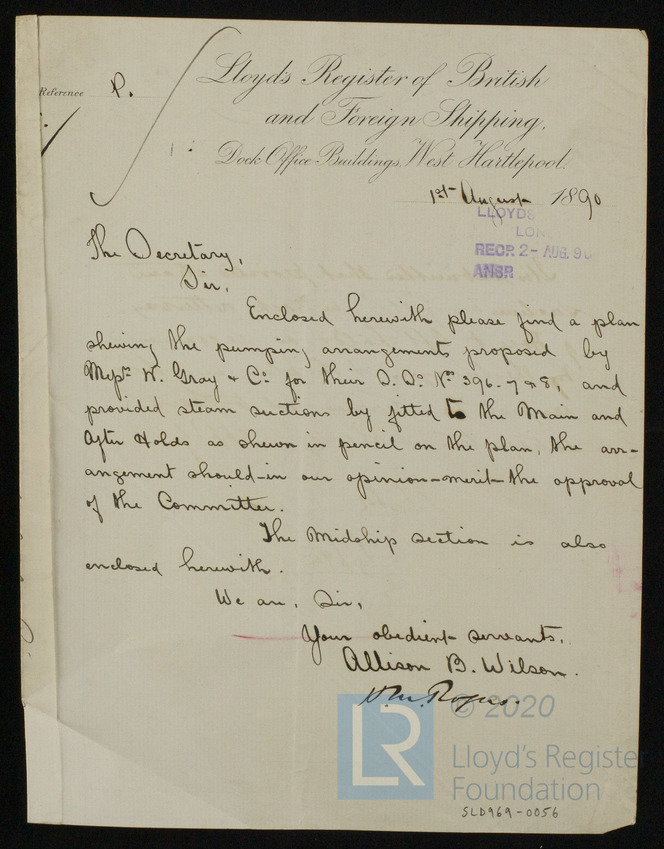 Lloyds Register of British
and Foreign Shipping.
Dock Office Buildings, West Hartlepool.
Reference P.
1st August 1890
LLOYDS
LON
RECP. 2- AUG. 90
ANSR
The Secretary,
Sir,
Enclosed herewith please find a plan
shewing the pumping arrangements proposed by
Messrs W. Gray & Co. for their S. So. Nos. 396. 7 & 8, and
provided steam suctions by fitted to the Main and
After Holds as shewn in pencil on the plan, the arr-
angement should in our opinion merit the approval
of the Committee.
The Midship section is also
enclosed herewith.
We are, Sir,
Your obedient servants,
Allison B. Wilson.
H. M. Rogers.
© 2020
LR
Lloyd's Register
Foundation
SLD969-0056